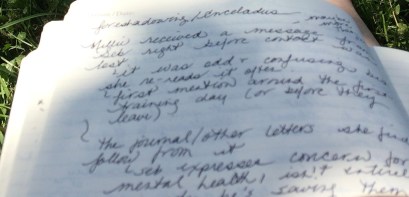 foreshadowing/Enceladus
Millie received a message from
Seb right before contact was
lost
↳ it was odd & confusing but
she re-reads it often
↳ first mention around the first
training day (or before they
leave)
the journal/other letters she finds
follow from it
↳ Seb expresses concern for
mental health, isn't entirely
he's saving them